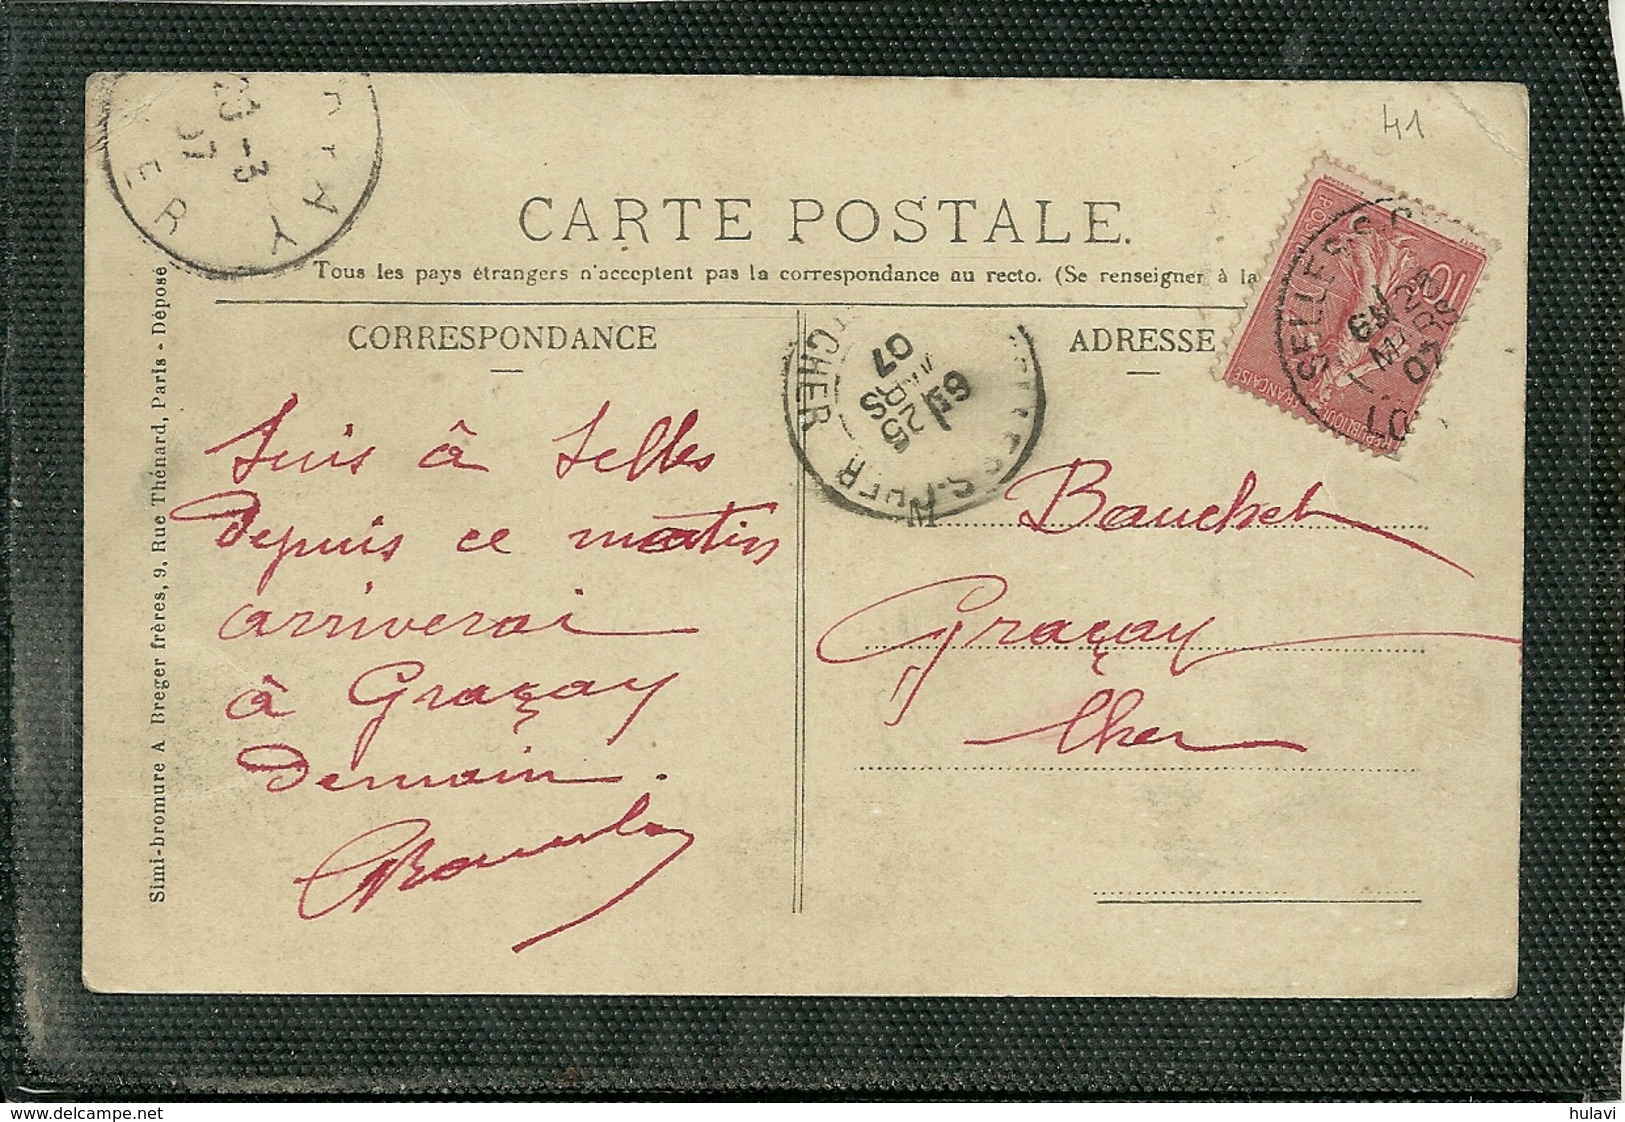 41
CARTE POSTALE.
Tous les pays étrangers n'acceptent pas la correspondance au recto. (Se renseigner à la
CORRESPONDANCE
ADRESSE
Suis à Selles
depuis ce matin
arriverai
à Graçay
Demain.
Bauchet
Graçay
Cher
Simi-bromure A Breger frères, 9, Rue Thénard, Paris - Déposé
SELLES S.
6E
25
MARS
07
CHER
6E
25
MARS
07
S. CHER
AY
ER
-3
07
10
POSTES
REPUBLIQUE FRANÇAISE
hulavi
delcampe.net